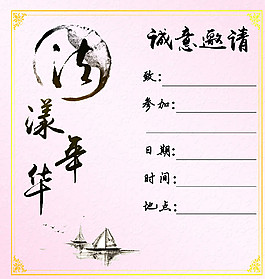 漾
华
诚意邀请
致：
参加：
日期：
时间：
地点：